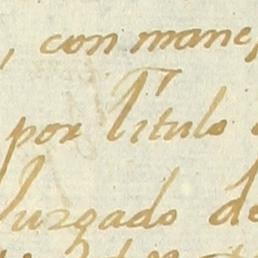 , con mane
por Titulo
Juzgado de